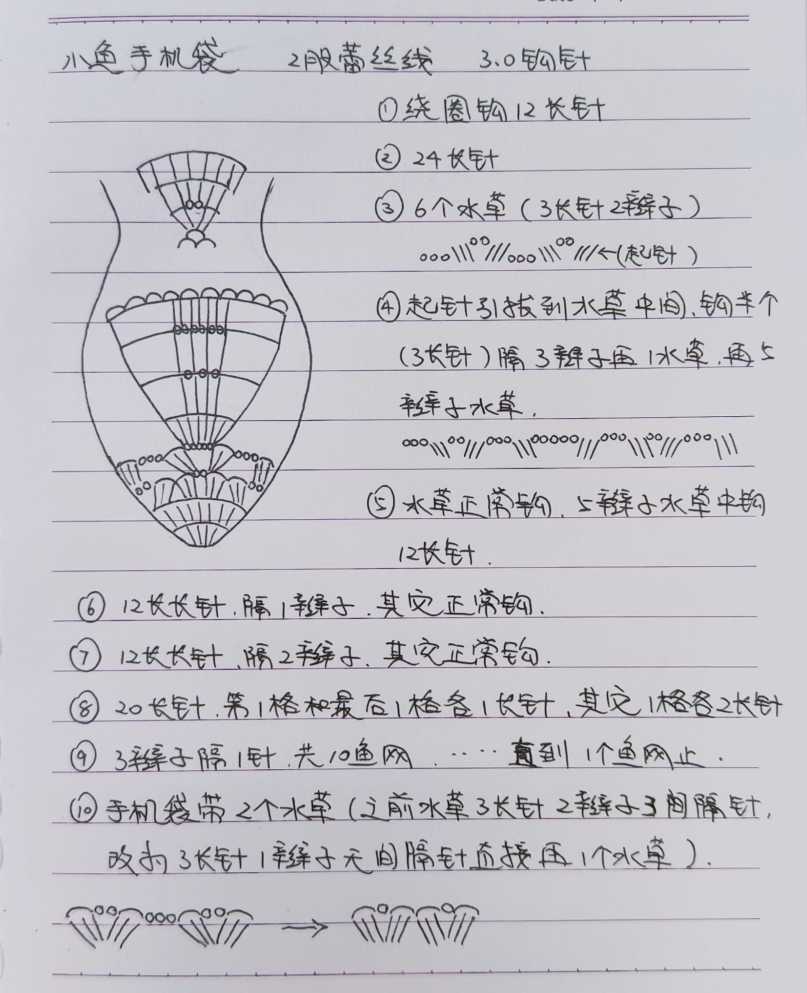 小鱼手机袋 2股蕾丝线 3.0钩针
①绕圈钩12长针
②24长针
③6个水草(3长针2辫子)
←(起针)
④起针引拔到水草中间,钩半个
(3长针)隔3辫子再1水草,再5
辫子水草.
⑤水草正常钩,5辫子水草中钩
12长针.
⑥12长长针,隔1辫子,其它正常钩.
⑦12长长针,隔2辫子,其它正常钩.
⑧20长针,第1格和最后1格各1长针,其它1格各2长针
⑨3辫子隔1针,共10鱼网,……直到1个鱼网止.
⑩手机袋带2个水草(之前水草3长针2辫子3间隔针,
改为3长针1辫子无间隔针直接再1个水草).